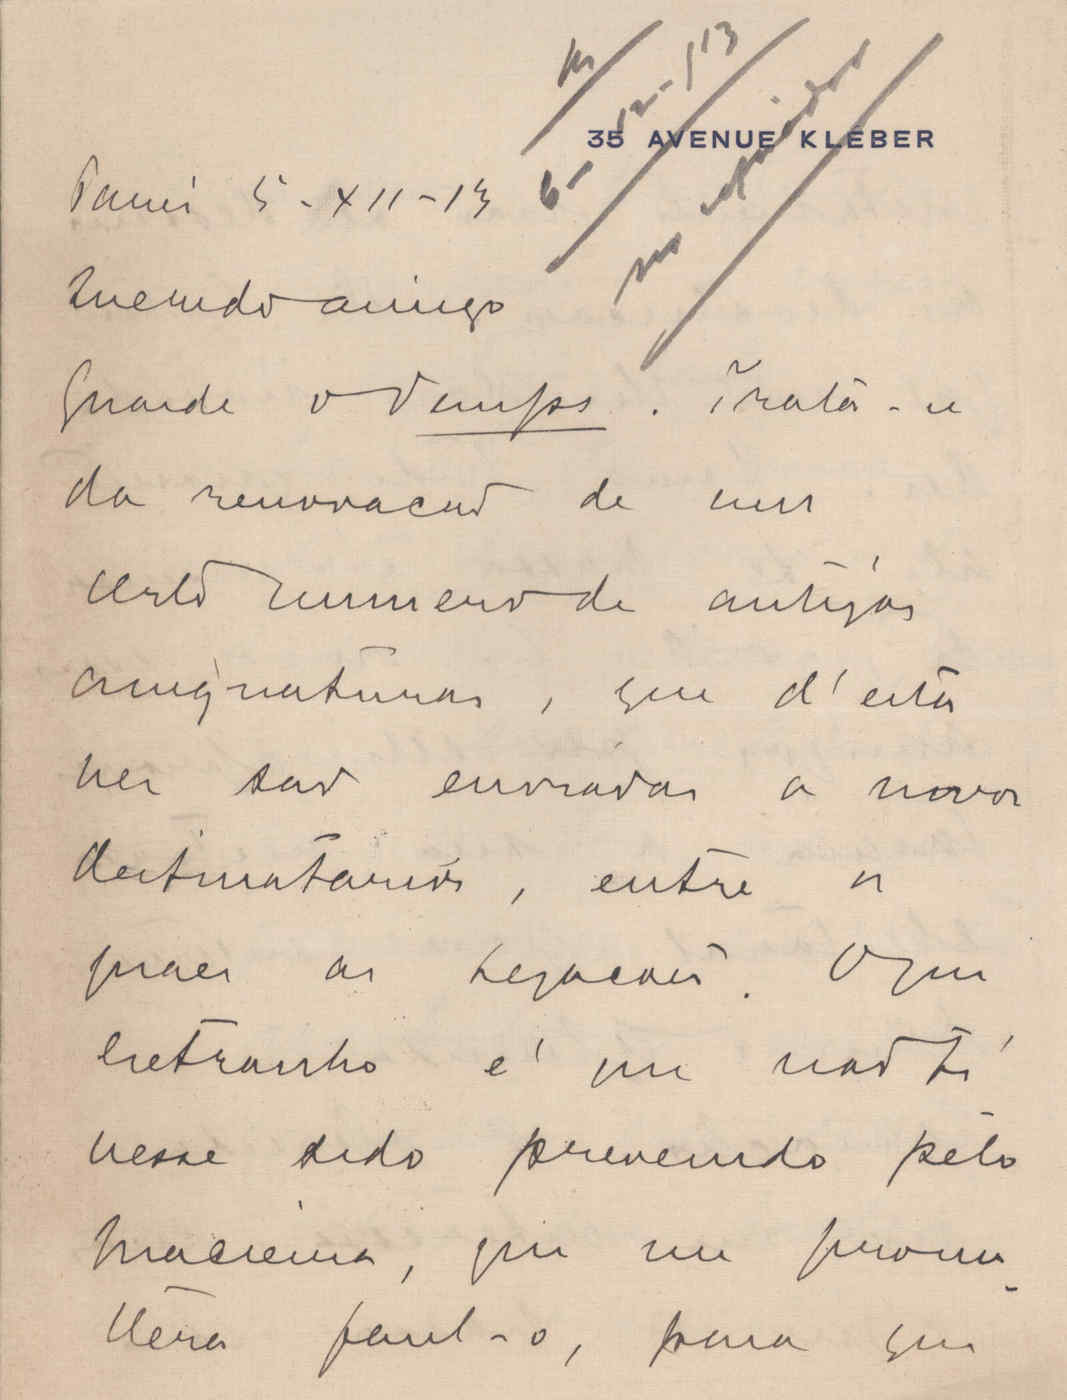 35 AVENUE KLÉBER
6-12-913
Paris 5-XII-13
Querido amigo
Guarde o Temps. Trata-se
da renovacao de um
certo numero de antigas
assignaturas, que d'esta
vez sao enviadas a novos
destinatarios, entre os
quaes as Legacoes. O que
extranho é que nao ti
vesse sido prevenido pelo
Macieira, que me prome
ttera fazel-o, para que